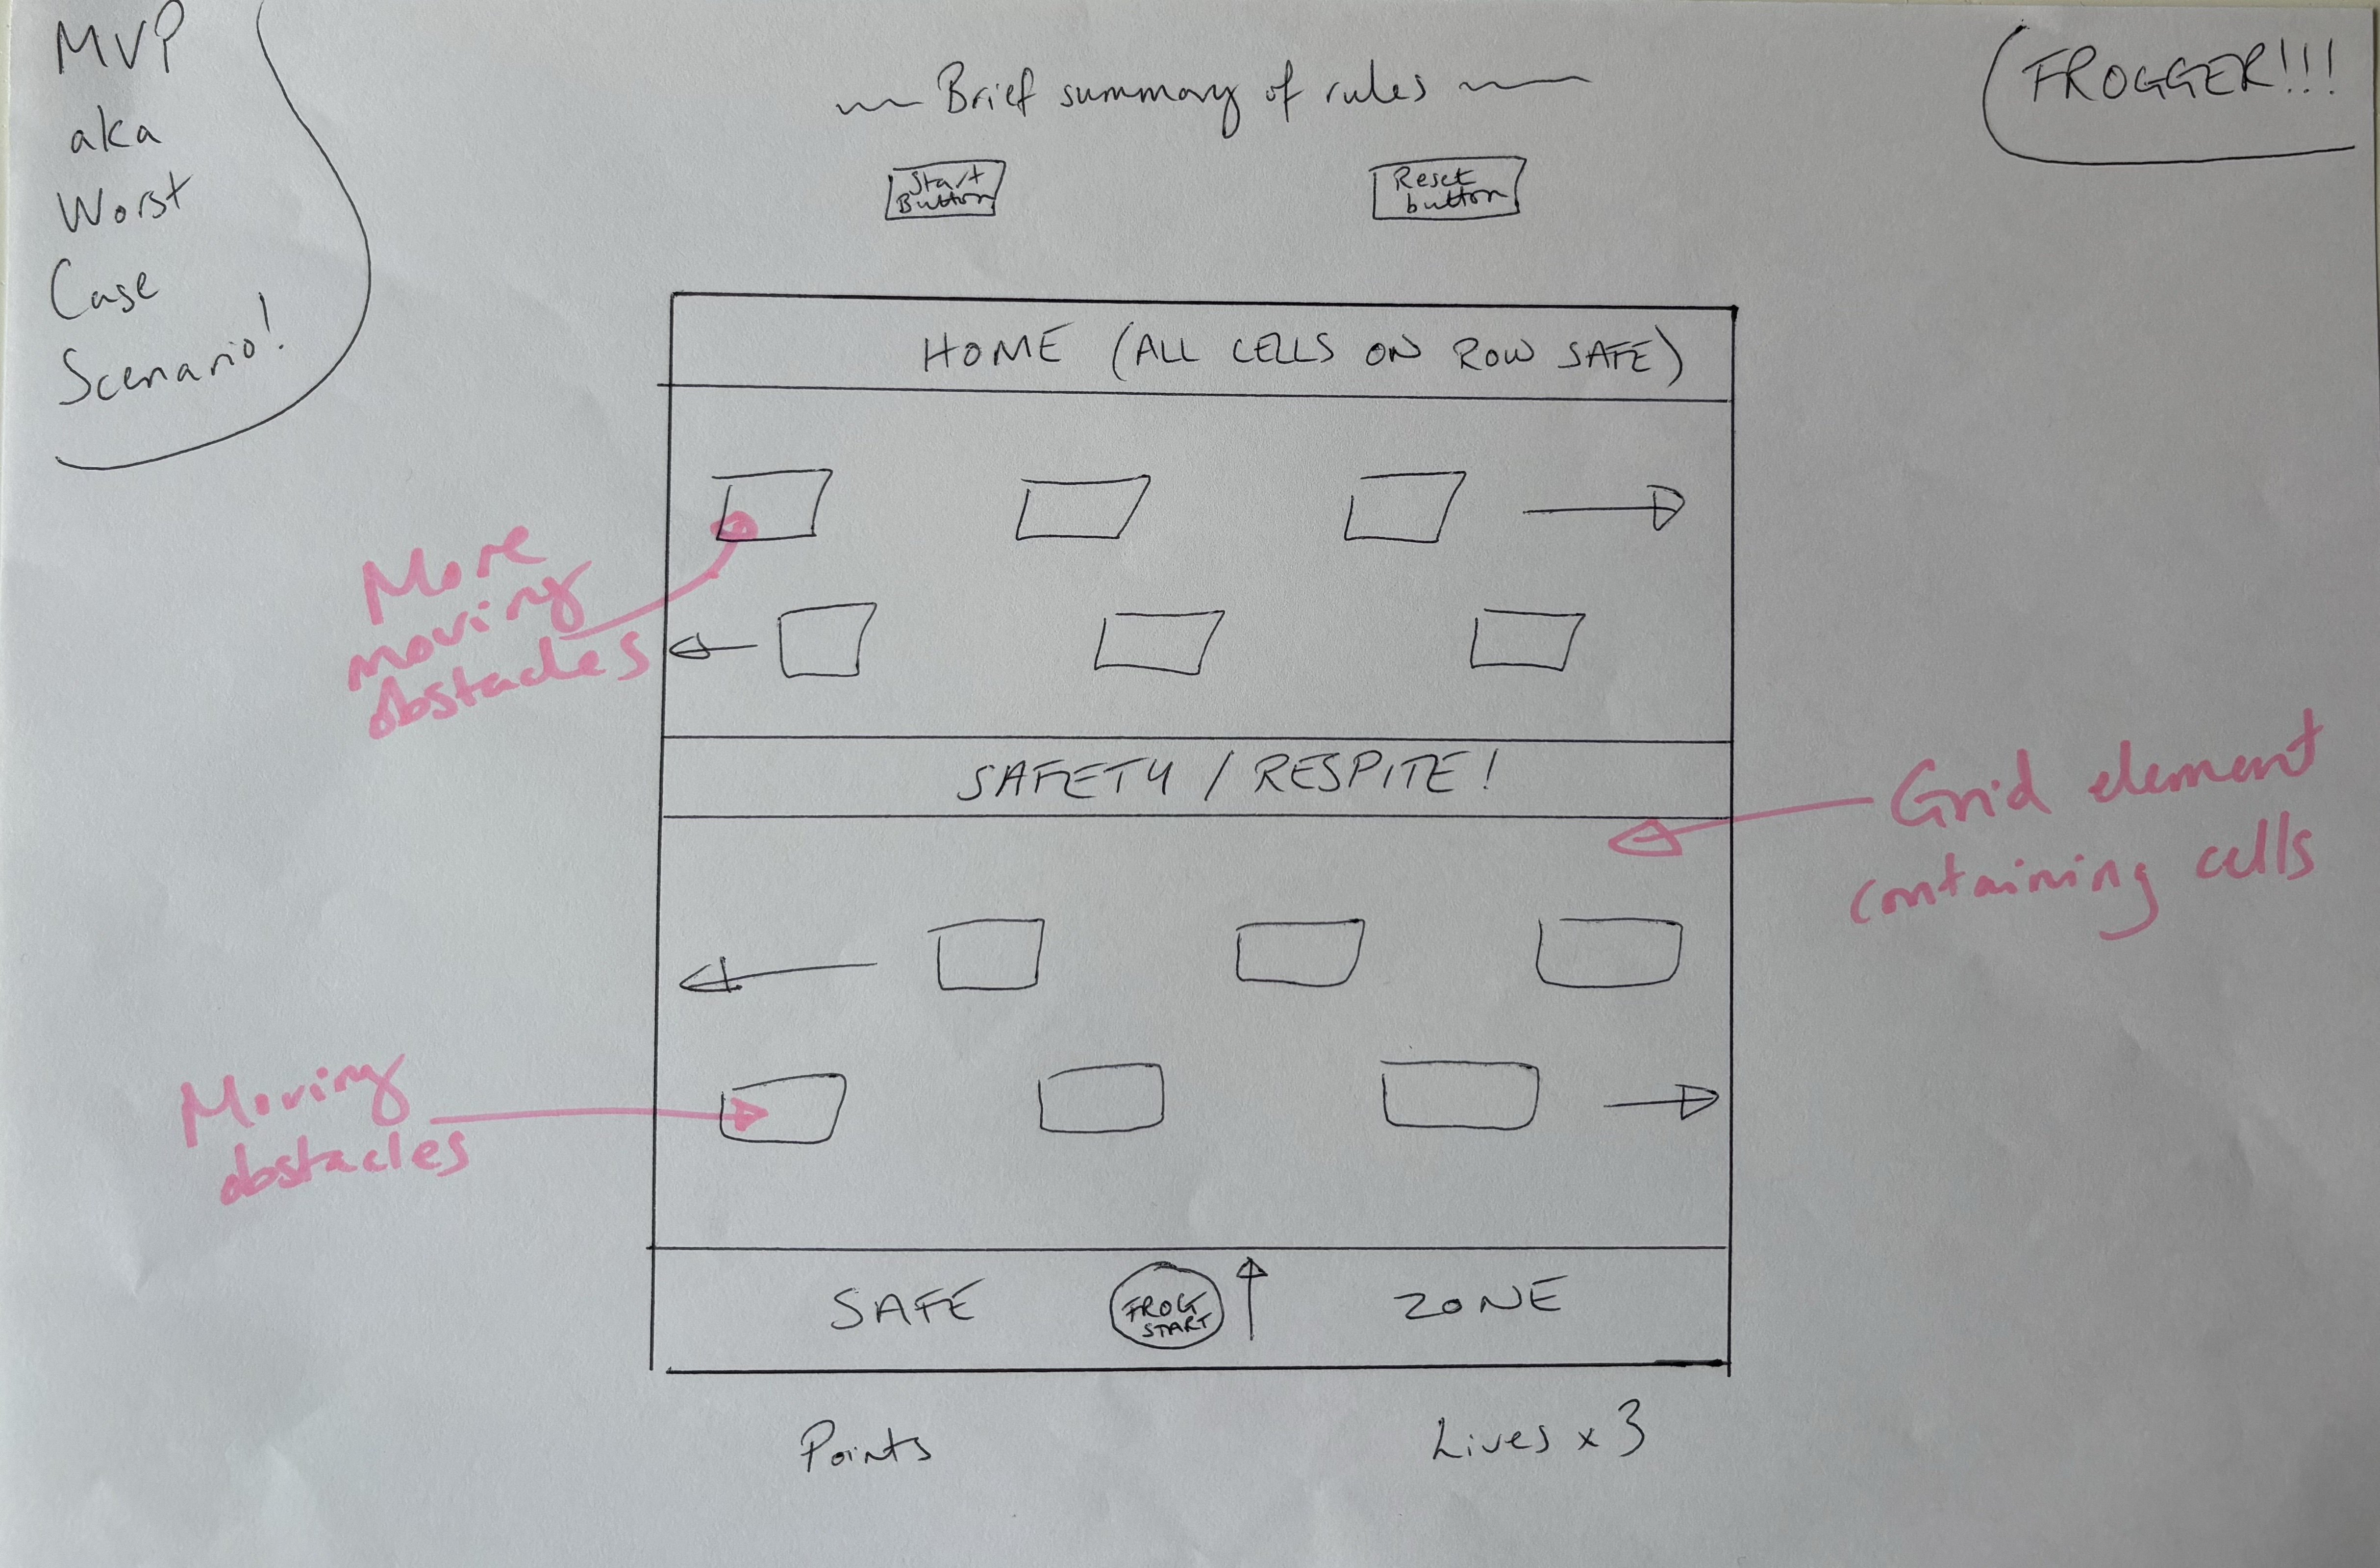 MVP
aka
Worst
Case
Scenario!
Brief summary of rules
FROGGER!!!
Start
Button
Reset
button
HOME (ALL CELLS ON ROW SAFE)
More
moving
obstacles
SAFETY / RESPITE!
Grid element
containing cells
Moving
obstacles
SAFE
FROG
START
ZONE
Points
Lives x 3